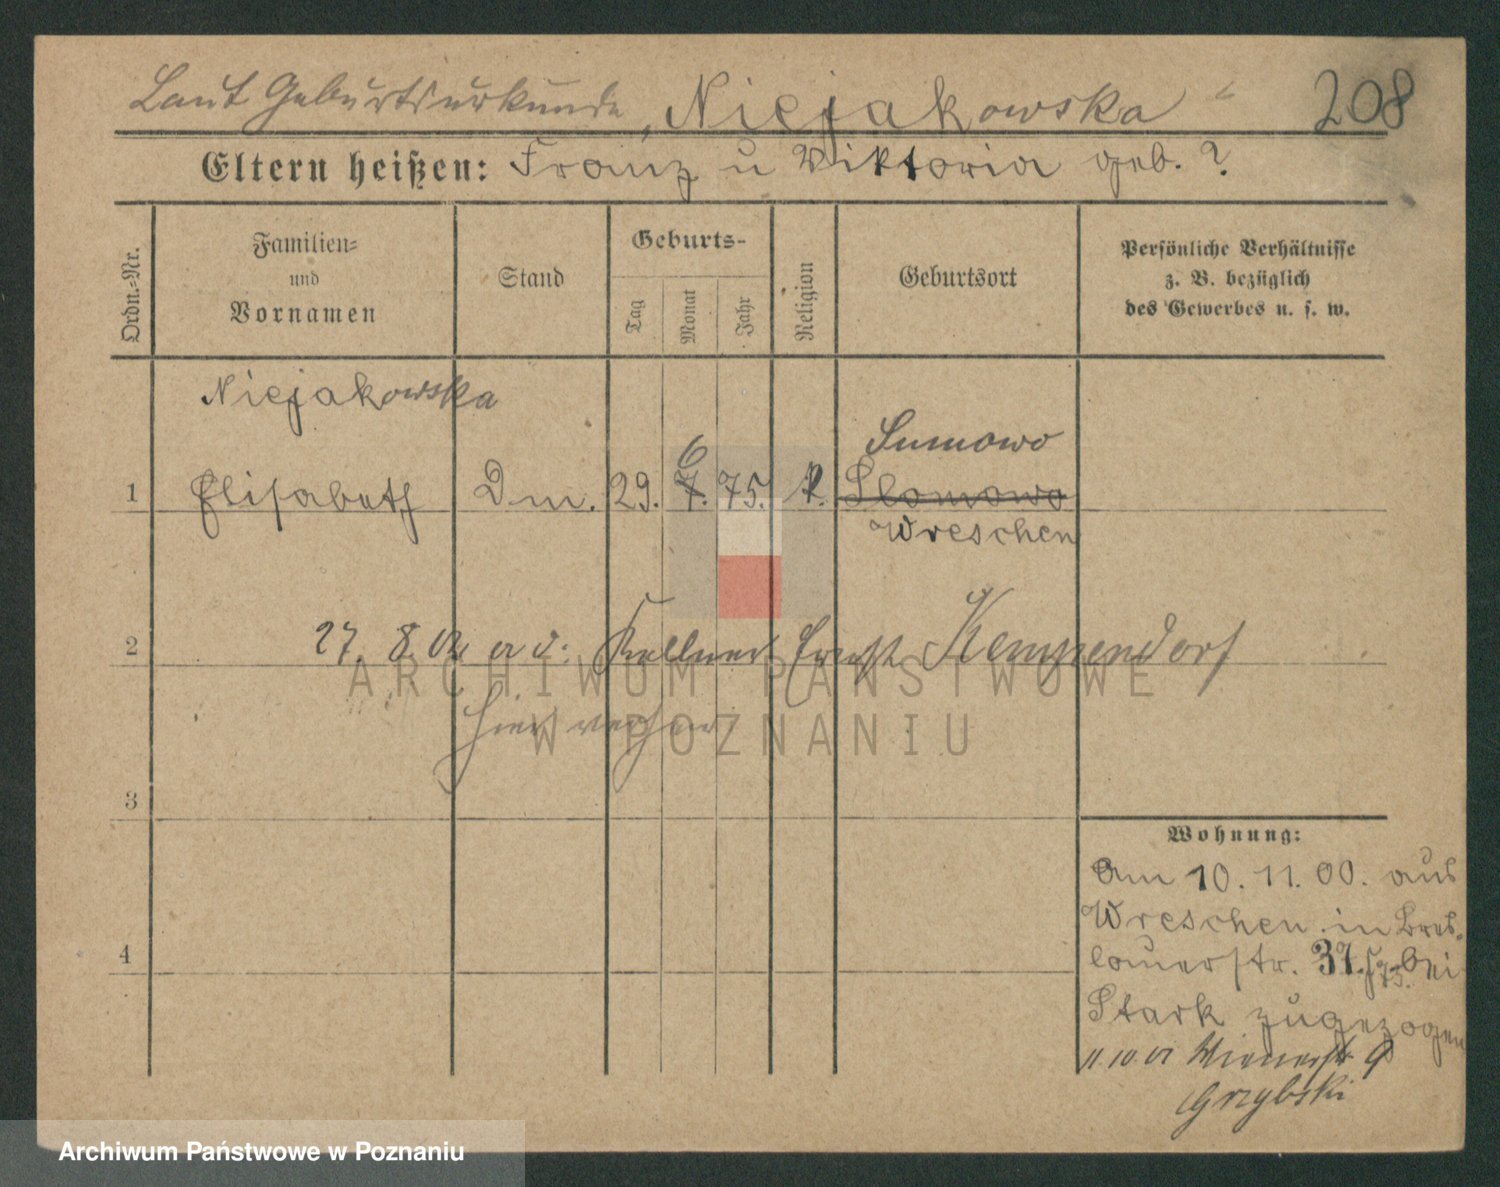 Laut Geburtsurkunde „Niejakowska“ 208
Eltern heißen: Franz u Wiktoria geb. ?
Ordn.-Nr.
Familien-
und
Vornamen
Stand
Geburts-
Tag
Monat
Jahr
Religion
Geburtsort
Persönliche Verhältnisse
z. B. bezüglich
des Gewerbes u. s. w.
Niejakowska
Sumowo
6
1 Elisabeth Dm. 29. 7. 75. K. Slomowo
Wreschen
2 27. 8. a. d. Kellner Ernst Kempendorf
hier
3
4
Wohnung:
Am 10. 11. 00. aus
Wreschen in Bres-
lauerstr. 37. bei
Stark zugezogen
11.10.01 Wienerstr. 9
Grzybski
ARCHIWUM PAŃSTWOWE
W POZNANIU
Archiwum Państwowe w Poznaniu